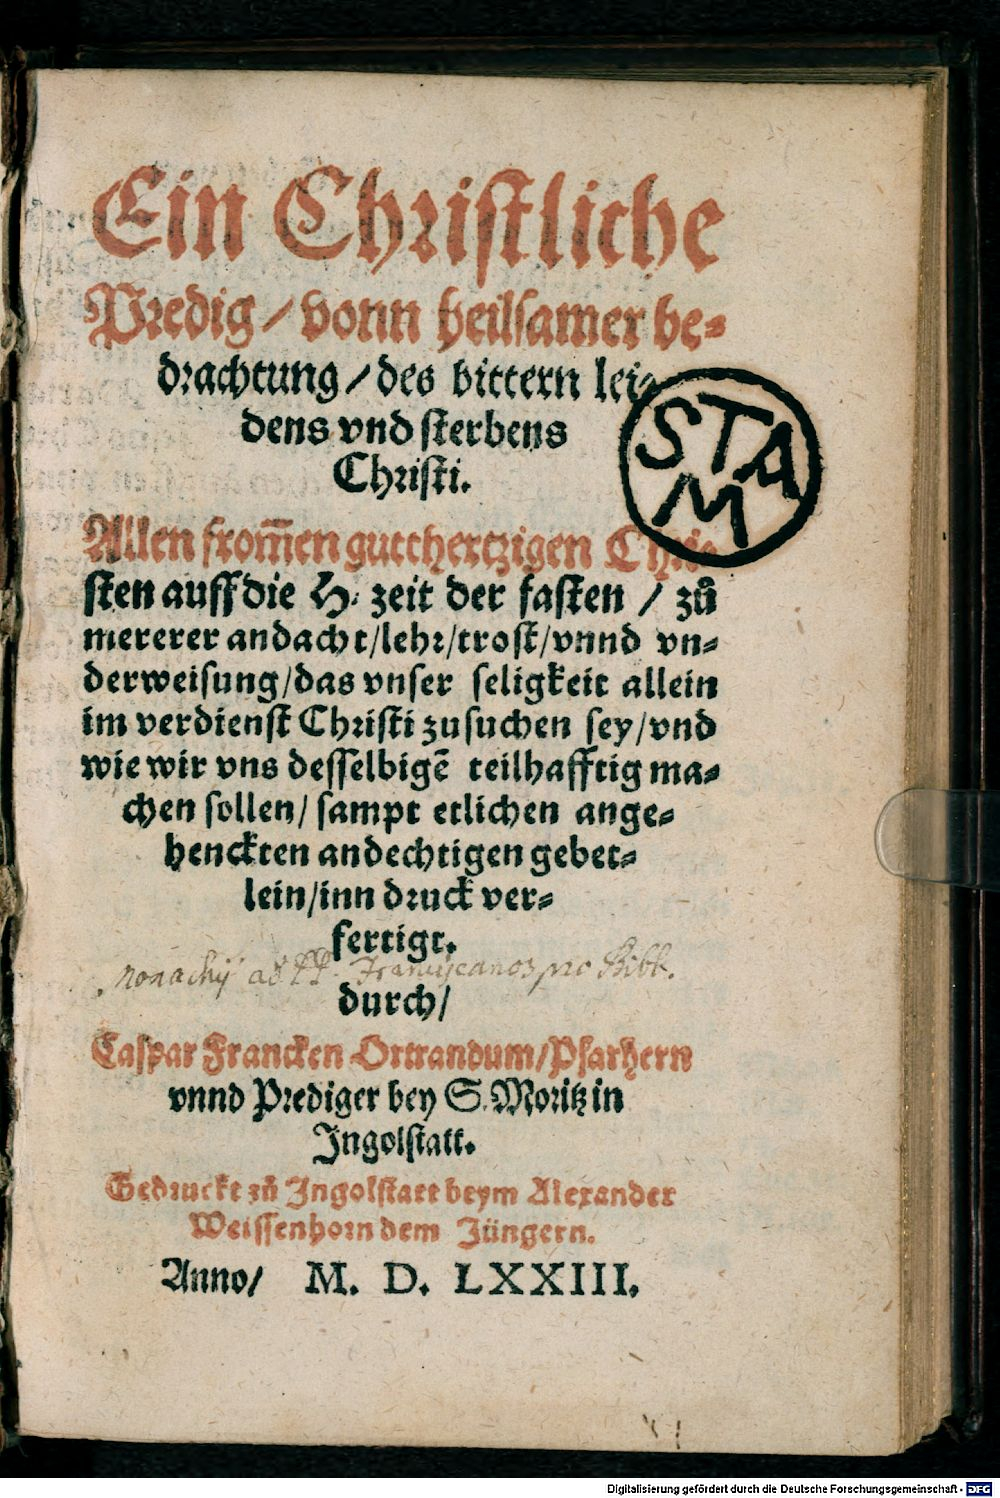 Ein Christliche
Predig / vonn heilsamer be-
drachtung / des bittern lei-
dens vnd sterbens
Christi.
STAM
Allen from̄en gutthertzigen Chri-
sten auff die H. zeit der fasten / zů
mererer andacht / lehr / trost / vnnd vn-
derweisung / das vnser seligkeit allein
im verdienst Christi zusuchen sey / vnd
wie wir vns desselbigē teilhafftig ma-
chen sollen / sampt etlichen ange-
henckten andechtigen gebet-
lein / inn druck ver-
fertigt.
Monachij ad PP. Franciscanos pro Bibl.
durch /
Caspar Francken Ortrandum / Pfarhern
vnnd Prediger bey S. Moritz in
Ingolstatt.
Gedruckt zů Ingolstatt beym Alexander
Weissenhorn dem Jüngern.
Anno / M. D. LXXIII.
Digitalisierung gefördert durch die Deutsche Forschungsgemeinschaft - DFG